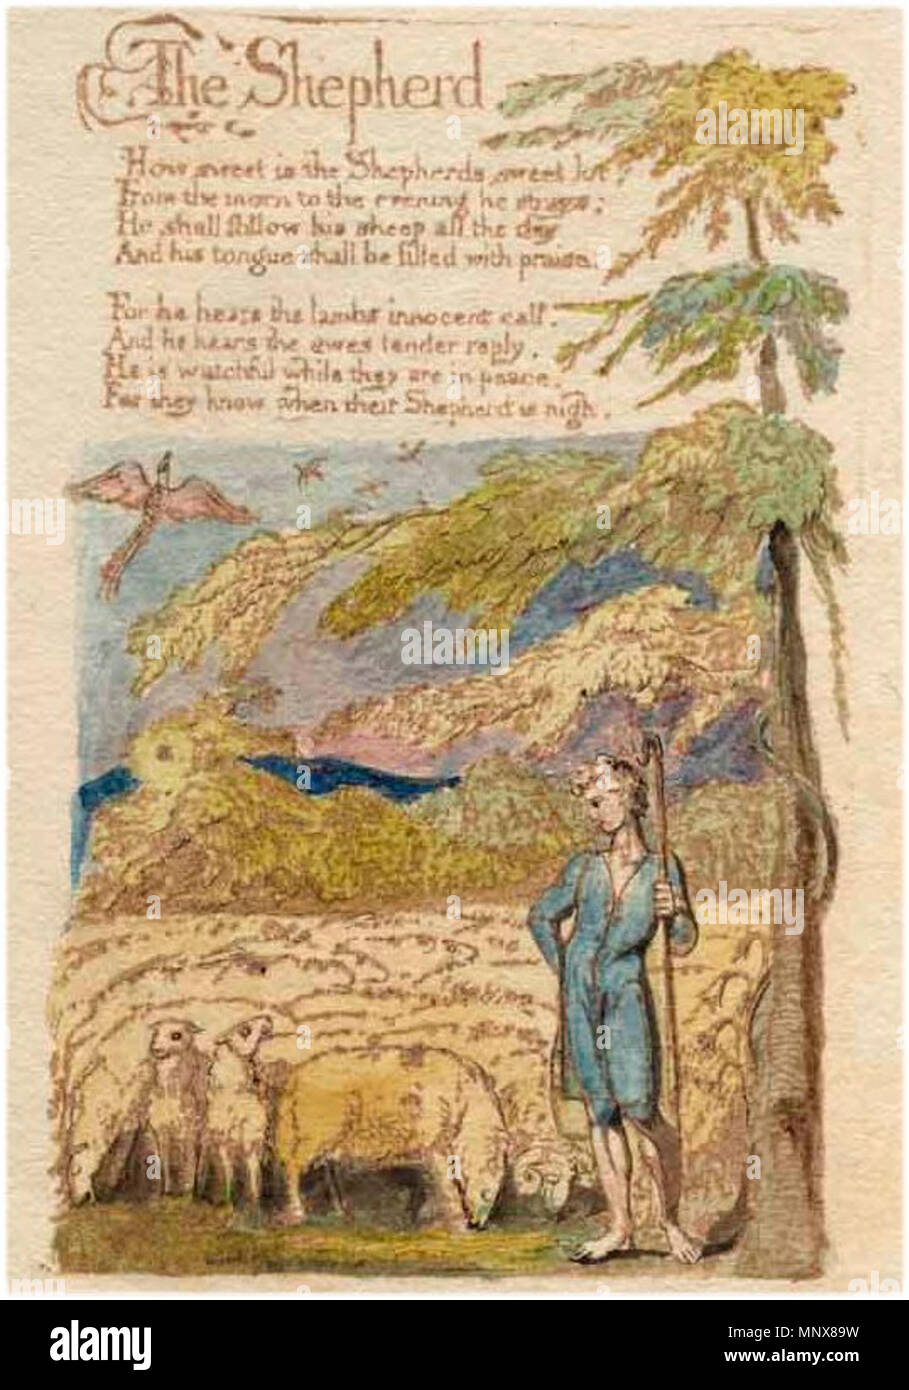 The Shepherd.
How sweet is the Shepherds sweet lot,
From the morn to the evening he strays:
He shall follow his sheep all the day
And his tongue shall be filled with praise.
For he hears the lambs innocent call.
And he hears the ewes tender reply.
He is watchful while they are in peace.
For they know when their Shepherd is nigh.
alamy
alamy
Image ID: MNX89W
www.alamy.com